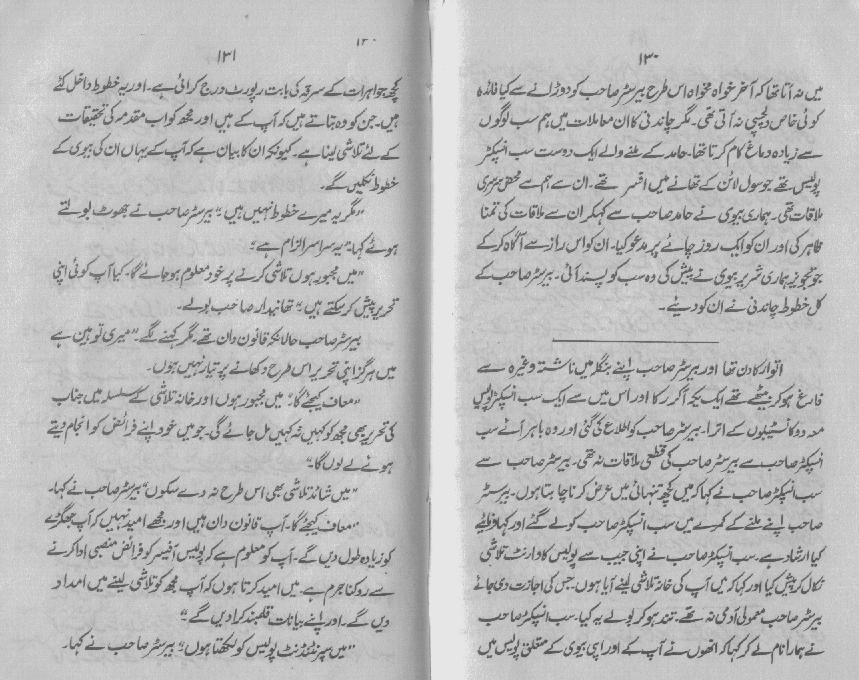 ۱۳۰
میں نہ آتا تھا کہ آخر خواہ مخواہ اس طرح بیرسٹر صاحب کو دوڑانے سے کیا فائدہ
کوئی خاص دلچسپی نہ آتی تھی۔ مگر چاندنی کا ان معاملات میں ہم سب لوگوں
سے زیادہ دماغ کام کرتا تھا۔ حامد کے ملنے والے ایک دوست سب انسپکٹر
پولیس تھے جو سول لائن کے تھانے میں افسر تھے۔ ان سے ہم سے محض سرسری
ملاقات تھی۔ ہماری بیوی نے حامد صاحب سے کہہ کر ان سے ملاقات کی تمنا
ظاہر کی اور ان کو ایک روز چائے پر مدعو کیا۔ ان کو اس راز سے آگاہ کر کے
جو تجویز ہماری شریر بیوی نے پیش کی وہ سب کو پسند آئی۔ بیرسٹر صاحب کے
کل خطوط چاندنی نے ان کو دیئے۔
اتوار کا دن تھا اور بیرسٹر صاحب اپنے بنگلہ میں ناشتہ وغیرہ سے
فارغ ہو کر بیٹھے تھے ایک یکہ آکر رکا اور اس میں سے ایک سب انسپکٹر پولیس
معہ دو کانسٹیبلوں کے اترا۔ بیرسٹر صاحب کو اطلاع کی گئی اور وہ باہر آئے سب
انسپکٹر صاحب سے بیرسٹر صاحب کی قطعی ملاقات نہ تھی۔ بیرسٹر صاحب سے
سب انسپکٹر صاحب نے کہا کہ میں کچھ تنہائی میں عرض کرنا چاہتا ہوں۔ بیرسٹر
صاحب اپنے ملنے کے کمرے میں سب انسپکٹر صاحب کو لے گئے اور کہا فرمایئے
کیا ارشاد ہے۔ سب انسپکٹر صاحب نے اپنی جیب سے پولیس کا وارنٹ تلاشی
نکال کر پیش کیا اور کہا کہ میں آپ کی خانہ تلاشی لینے آیا ہوں۔ جس کی اجازت دی جائے
بیرسٹر صاحب معمولی آدمی نہ تھے۔ تند ہو کر بولے یہ کیا۔ سب انسپکٹر صاحب
نے ہمارا نام لے کر کہا کہ انھوں نے آپ کے اور اپنی بیوی کے متعلق پولیس میں
۱۳۰
۱۳۱
کچھ جواہرات کے سرقہ کی بابت رپورٹ درج کرائی ہے۔ اور یہ خطوط داخل کئے
ہیں۔ جن کو وہ بتاتے ہیں کہ آپ کے ہیں اور مجھ کو اب مقدمہ کی تحقیقات
کے لئے تلاشی لینا ہے۔ کیونکہ ان کا بیان ہے کہ آپ کے یہاں ان کی بیوی کے
خطوط نکلیں گے۔
”مگر یہ میرے خطوط نہیں ہیں“۔ بیرسٹر صاحب نے جھوٹ بولتے
ہوئے کہا ”یہ سراسر الزام ہے“
”میں مجبور ہوں تلاشی کرنے پر خود معلوم ہو جائے گا۔ کیا آپ کوئی اپنی
تحریر پیش کر سکتے ہیں“۔ تھانیدار صاحب بولے۔
بیرسٹر صاحب حالانکہ قانون دان تھے، مگر کہنے لگے۔ ”میری توہین ہے
میں ہرگز اپنی تحریر اس طرح دکھانے پر تیار نہیں ہوں۔
”معاف کیجئے گا۔“ میں مجبور ہوں اور خانہ تلاشی کے سلسلہ میں جناب
کی تحریر بھی مجھ کو کہیں نہ کہیں مل جائے گی۔ جو میں خود اپنے فرائض کو انجام دیتے
ہوئے لے لوں گا۔“
”میں شائد تلاشی بھی اس طرح نہ دے سکوں“ بیرسٹر صاحب نے کہا۔
”معاف کیجئے گا۔ آپ قانون دان ہیں اور مجھے امید نہیں کہ آپ جھگڑے
کو زیادہ طول دیں گے۔ آپ کو معلوم ہے کہ پولیس آفیسر کو فرائض منصبی ادا کرنے
سے روکنا جرم ہے۔ میں امید کرتا ہوں کہ آپ مجھ کو تلاشی لینے میں امداد
دیں گے۔ اور اپنے بیانات قلمبند کرا دیں گے۔“
”میں سپرنٹنڈنٹ پولیس کو لکھتا ہوں“ بیرسٹر صاحب نے کہا۔